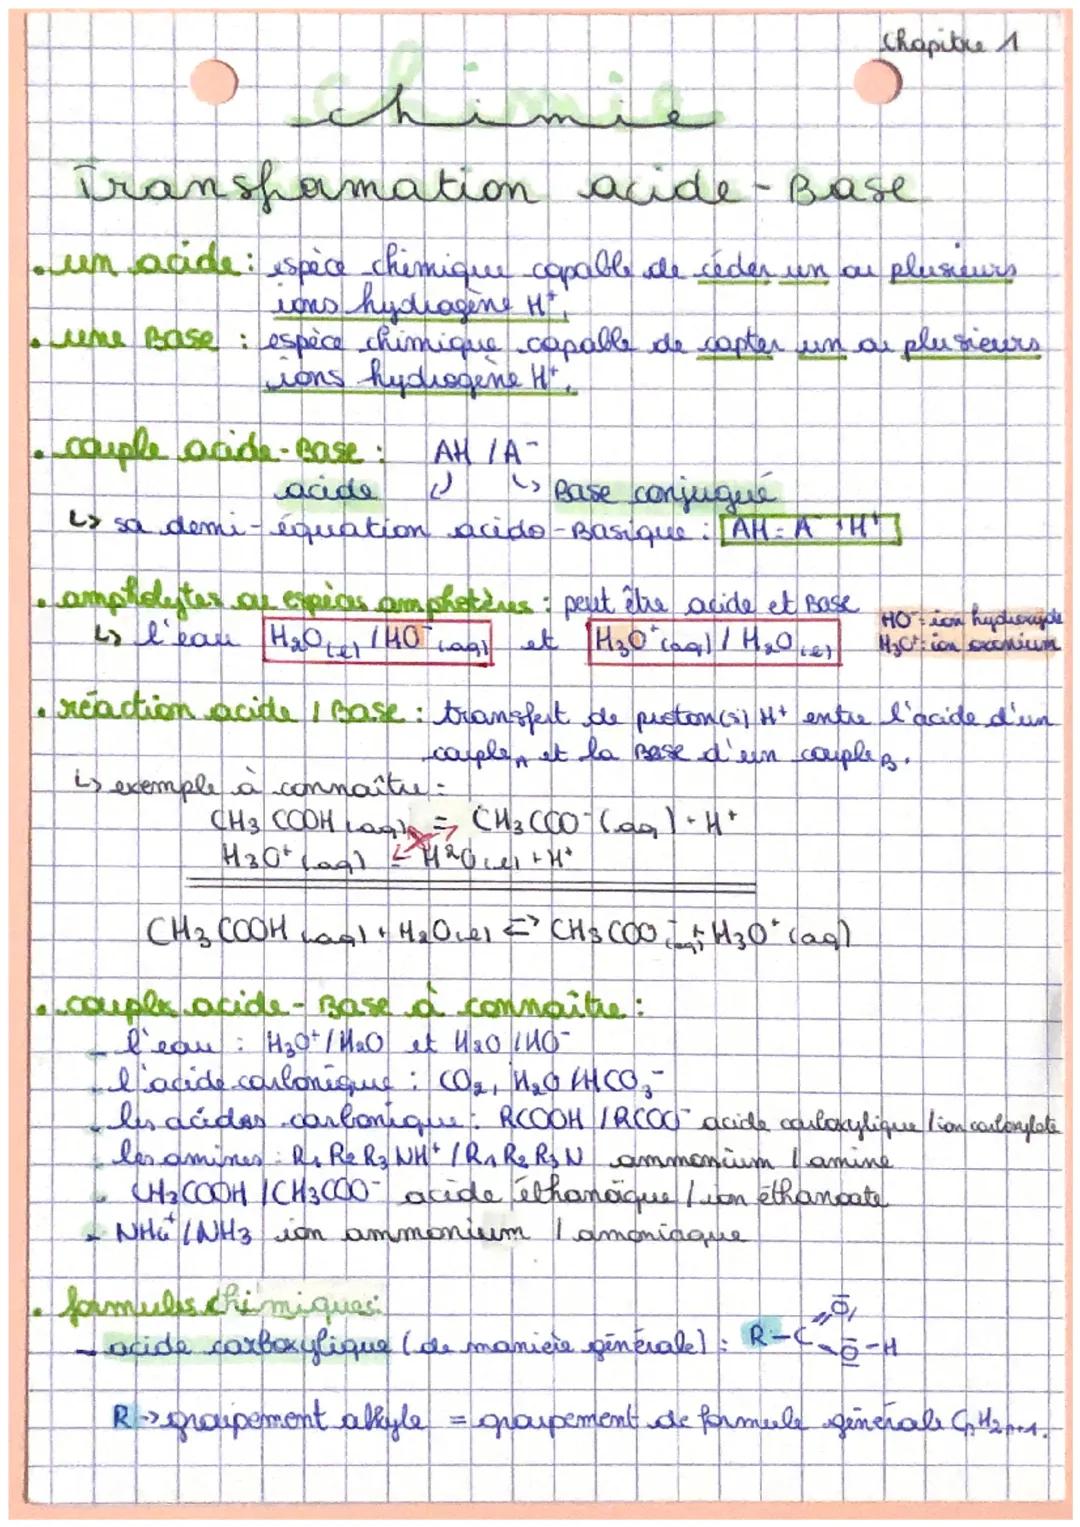 Chapitre 1
Chimie
Transformation acide-Base
• un acide : espèce chimique capable de céder un ou plusieurs
ions hydrogène H⁺.
• une Base : espèce chimique capable de capter un ou plusieurs
ions hydrogène H⁺.
• couple acide-Base : AH / A⁻
acide ↲ ↳ Base conjugué
↳ sa demi-équation acido-Basique : AH = A⁻ + H⁺
• ampholytes ou espèces amphotères : peut être acide et Base
↳ l'eau H₂O(l) / HO⁻(aq) et H₃O⁺(aq) / H₂O(l)
HO⁻: ion hydroxyde
H₃O⁺: ion oxonium
• réaction acide / Base : transfert de proton(s) H⁺ entre l'acide d'un
couple A et la Base d'un couple B.
↳ exemple à connaître :
CH₃COOH(aq) = CH₃COO⁻(aq) + H⁺
H₃O⁺(aq) = H₂O(l) + H⁺
CH₃COOH(aq) + H₂O(l) ⇄ CH₃COO⁻(aq) + H₃O⁺(aq)
• couple acide-Base à connaître :
- l'eau : H₃O⁺/H₂O et H₂O/HO⁻
- l'acide carbonique : CO₂, H₂O/HCO₃⁻
- les acides carbonique : RCOOH/RCOO⁻ acide carboxylique / ion carboxylate
- les amines : R₁R₂R₃NH⁺/R₁R₂R₃N ammonium / amine
- CH₃COOH/CH₃COO⁻ acide éthanoïque / ion éthanoate
- NH₄⁺/NH₃ ion ammonium / amoniaque
• formules chimiques :
- acide carboxylique (de manière générale) : R-C
O
O-H
R → groupement alkyle = groupement de formule générale CₙH₂ₙ₊₁.